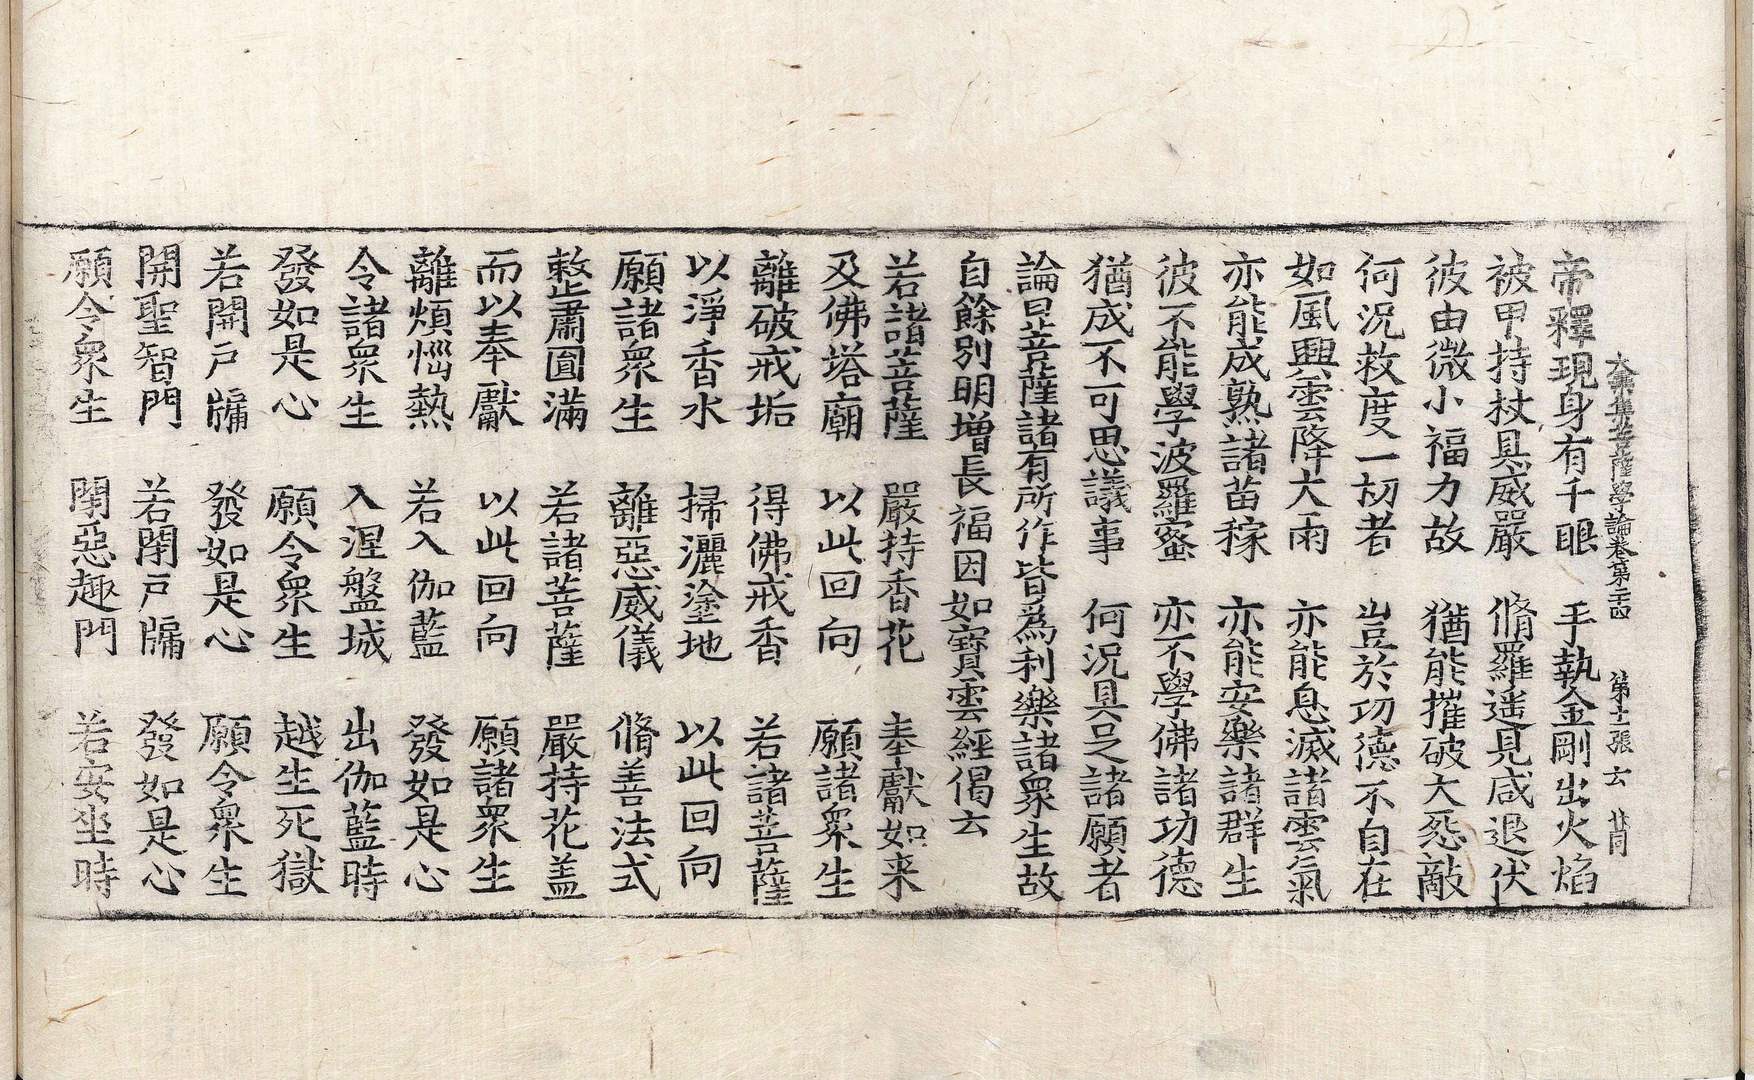 大乘集菩薩學論卷第二十四　第十一張　玄
帝釋現身有千眼　手執金剛出火焰
被甲持杖具威嚴　脩羅遥見咸退伏
彼由微小福力故　猶能摧破大怨敵
何況救度一切者　豈於功德不自在
如風興雲降大雨　亦能息滅諸雲氣
亦能成熟諸苗稼　亦能安樂諸群生
彼不能學波羅蜜　亦不學佛諸功德
猶成不可思議事　何況具足諸願者
論曰菩薩諸有所作皆爲利樂諸衆生故
自餘別明增長福因如寶雲經偈云
若諸菩薩　嚴持香花　奉獻如来
及佛塔廟　以此回向　願諸衆生
離破戒垢　得佛戒香　若諸菩薩
以淨香水　掃灑塗地　以此回向
願諸衆生　離惡威儀　脩善法式
整肅圓滿　若諸菩薩　嚴持花盖
而以奉獻　以此回向　願諸衆生
離煩惱熱　若入伽藍　發如是心
令諸衆生　入涅盤城　出伽藍時
發如是心　願令衆生　越生死獄
若開戶牖　發如是心　願令衆生
開聖智門　若閉戶牖　發如是心
願令衆生　閉惡趣門　若安坐時